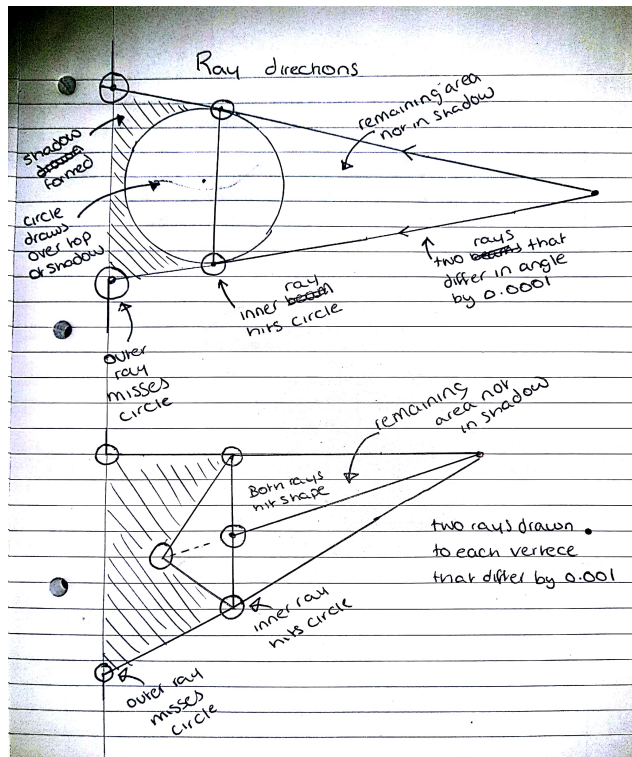 Ray directions
remaining area
not in shadow
shadow
formed
circle
draws
over top
of shadow
two rays that
differ in angle
by 0.0001
inner ray
hits circle
outer
ray
misses
circle
remaining
area not
in shadow
Both rays
hit shape
two rays drawn
to each vertece
that differ by 0.001
inner ray
hits circle
outer ray
misses
circle